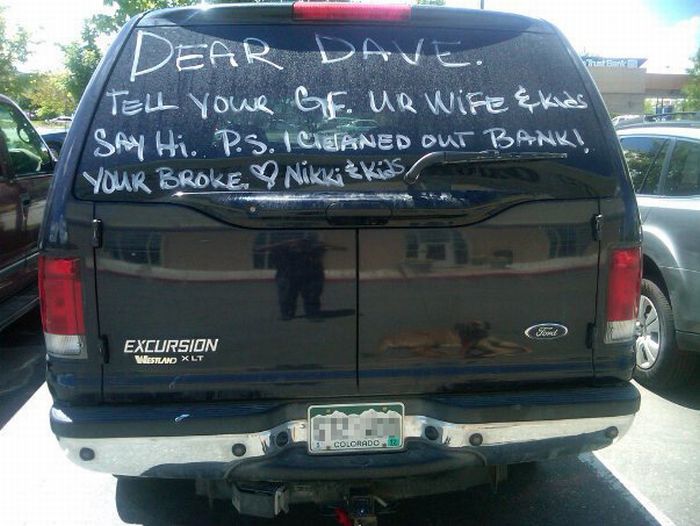 DEAR DAVE.
TELL YOUR GF. UR WIFE & KIDS
SAY HI. P.S. I CLEANED OUT BANK!
YOUR BROKE. ♡ NIKKI & KIDS
EXCURSION
WESTLAND XLT
Ford
COLORADO
Trust Bank